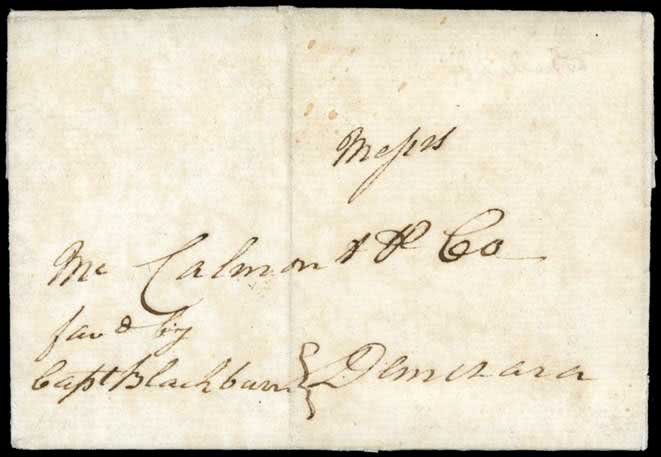 Messrs
Mc Calmont & Co
favd by
Capt Blackburn
Demerara